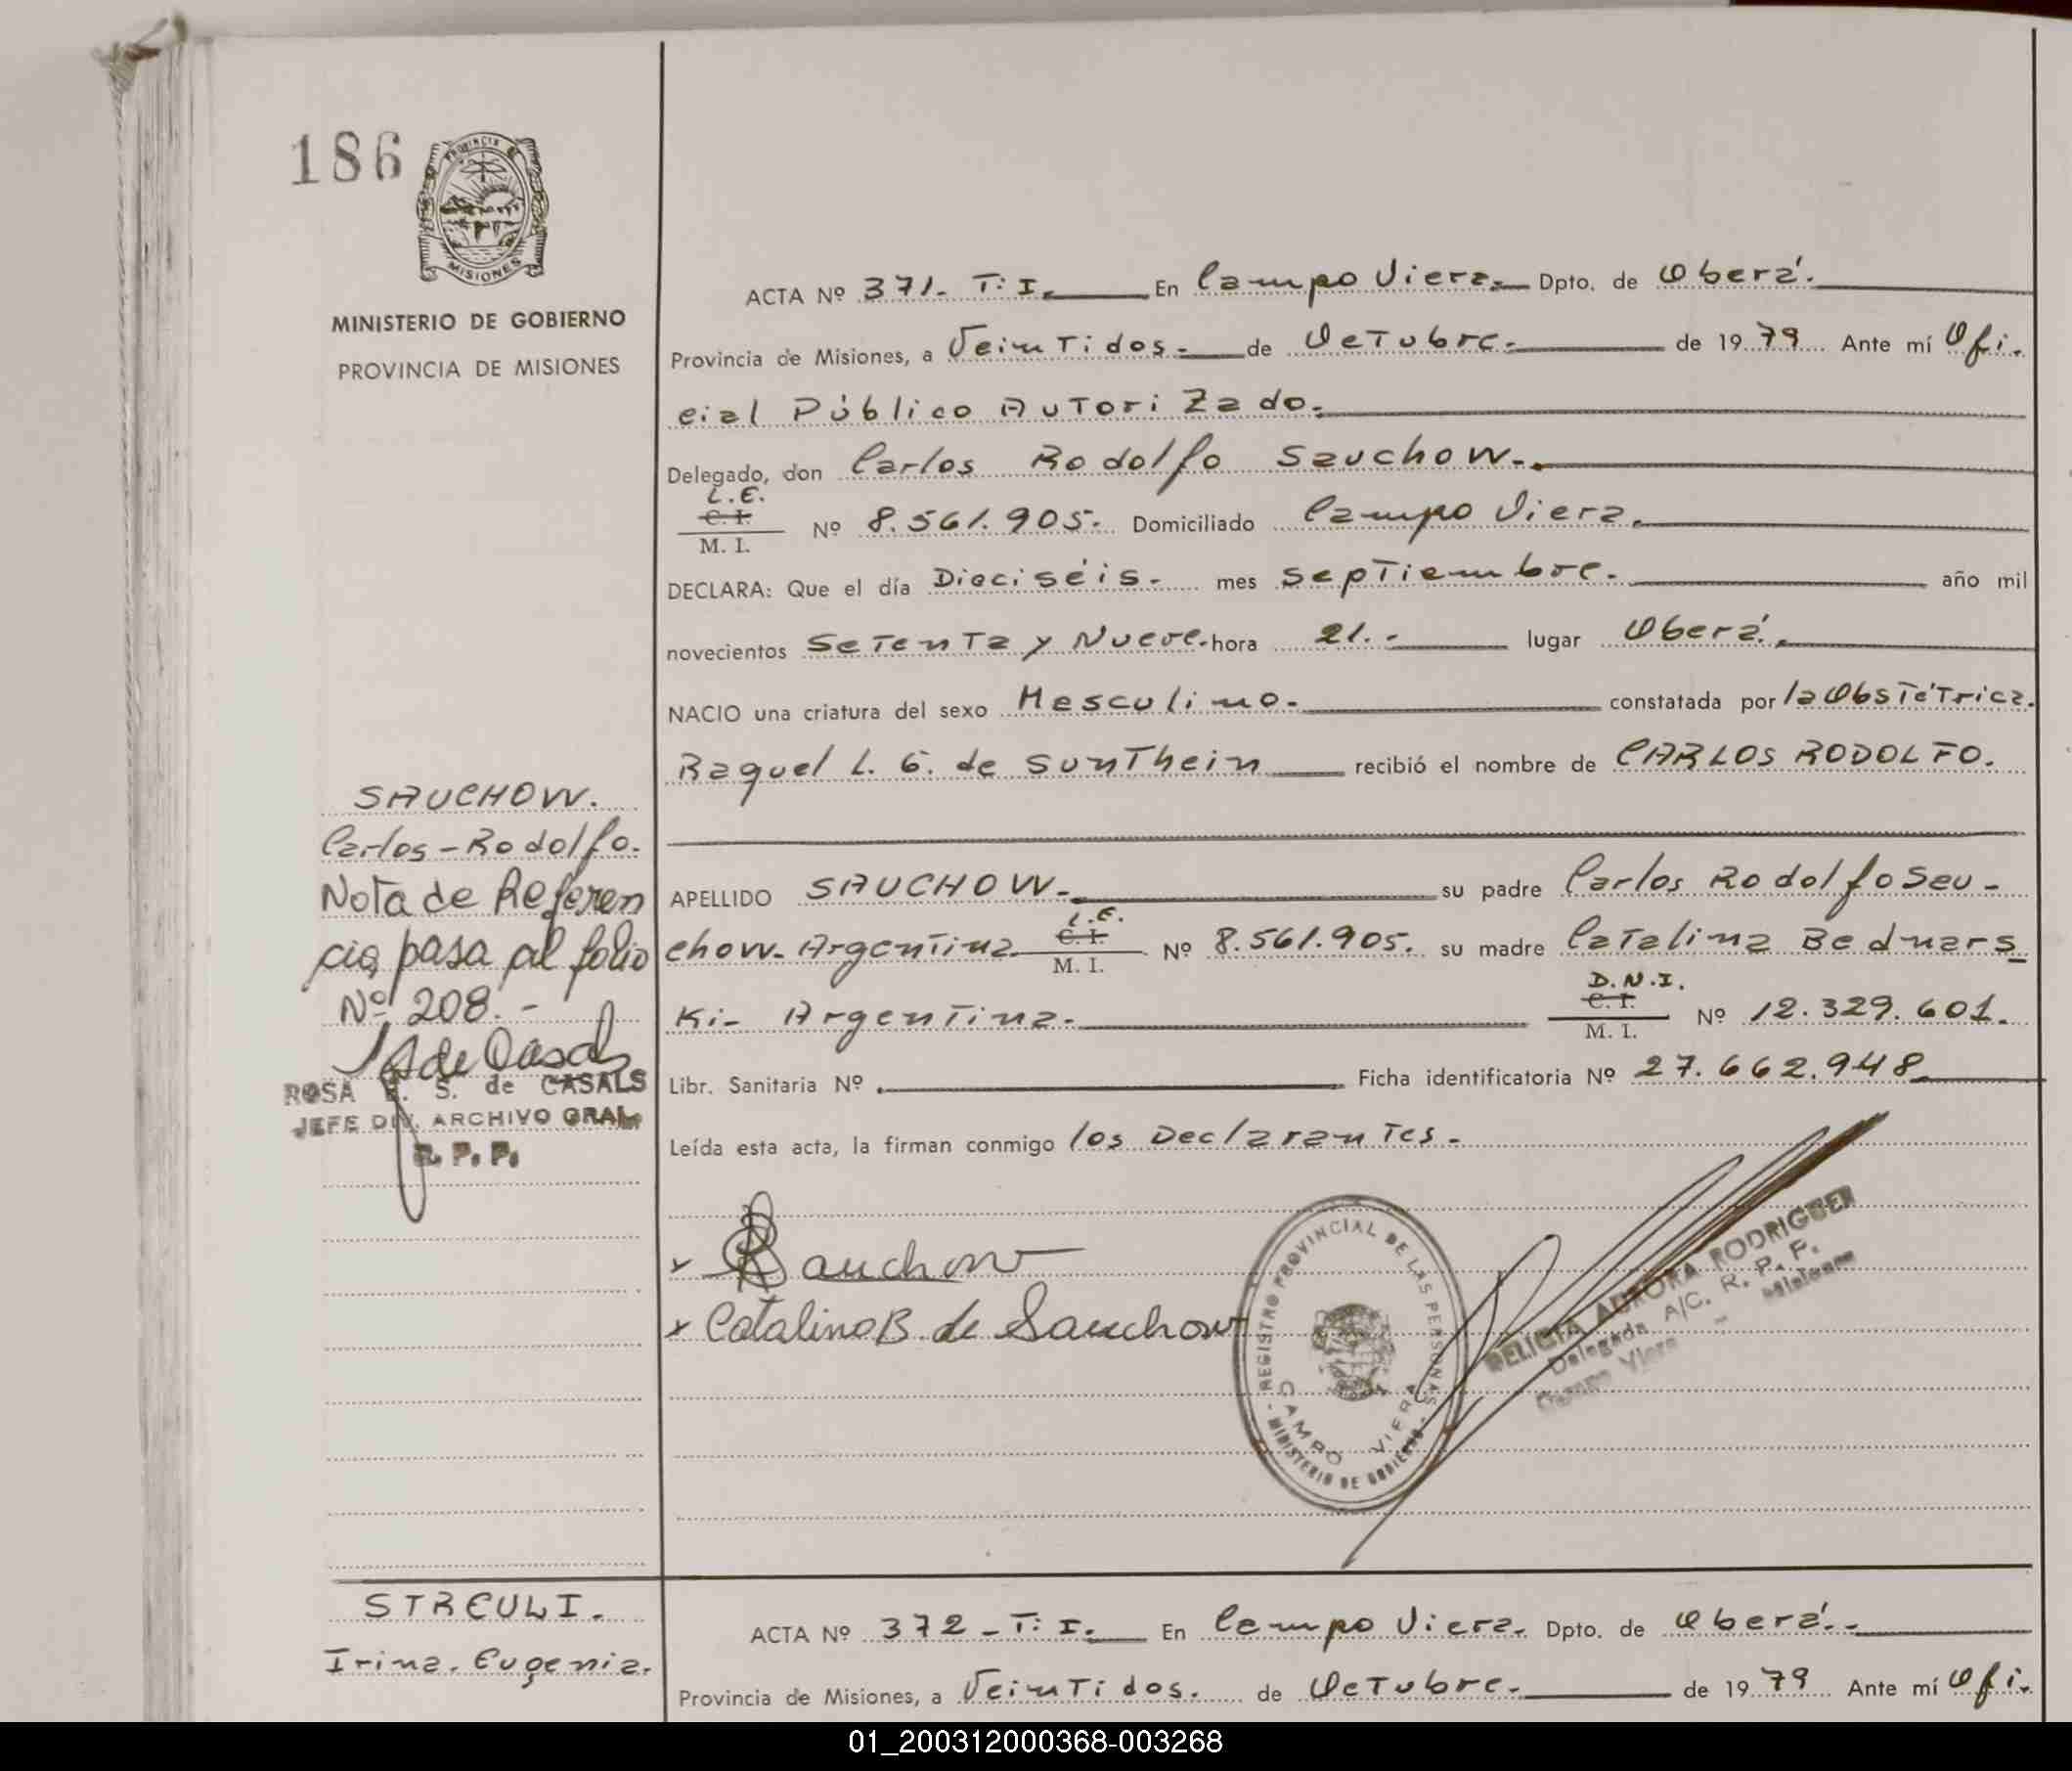 186
PROVINCIA DE
MISIONES
MINISTERIO DE GOBIERNO
PROVINCIA DE MISIONES
ACTA Nº 371- T: I. En Campo Viera. Dpto. de Oberá.
Provincia de Misiones, a Veintidos. de Octubre. de 1979 Ante mí Ofi.
cial Público Autorizado.
Delegado, don Carlos Rodolfo Sauchow.
L.E.
C. I.
M. I.
Nº 8.561.905. Domiciliado Campo Viera.
DECLARA: Que el día Dieciséis. mes Septiembre. año mil
novecientos Setenta y Nueve. hora 21.- lugar Oberá.
NACIO una criatura del sexo Masculino. constatada por la Obstétrica.
Raquel L. G. de Sunthein recibió el nombre de CARLOS RODOLFO.
SAUCHOW.
Carlos-Rodolfo.
Nota de Referen
cia, pasa al folio
Nº 208.-
ROSA E. S. de CASALS
JEFE DIV. ARCHIVO GRAL.
R. P. P.
APELLIDO SAUCHOW. su padre Carlos Rodolfo Sau-
chow- Argentina L.E. C. I. M. I. Nº 8.561.905. su madre Catalina Bednars
ki- Argentina. D.N.I. C. I. M. I. Nº 12.329.601.
Libr. Sanitaria Nº Ficha identificatoria Nº 27.662.948
Leída esta acta, la firman conmigo los Declarantes.
x Sauchow
x Catalina B. de Sauchow
- REGISTRO PROVINCIAL DE LAS PERSONAS -
CAMPO VIERA
MINISTERIO DE GOBIERNO
DELICIA AURORA RODRIGUEZ
Delegada A/C. R. P. P.
Campo Viera - Misiones
STREULI.
Irina. Eugenia.
ACTA Nº 372- T: I. En Campo Viera. Dpto. de Oberá.
Provincia de Misiones, a Veintidos. de Octubre. de 1979 Ante mí Ofi.
01_200312000368-003268